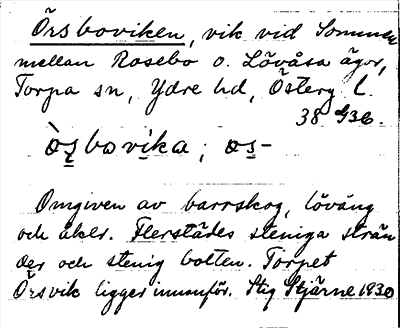 Örsboviken, vik vid Sommen
mellan Rosebo o. Lövåsa ägor,
Torpa sn, Ydre hd, Österg. L.
38 G3c.
ò̱s̱bovi̱ka; o̱s̱-
Omgiven av barrskog, löväng
och åker. Flerstädes steniga strän
der och stenig botten. Torpet
Örsvik ligger innanför. Stig Stjärne 1930